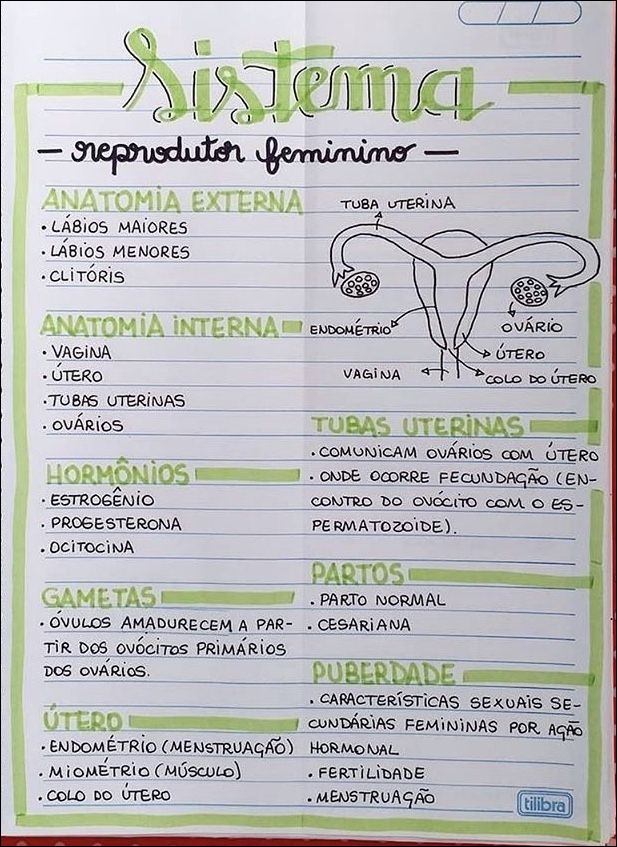 Sistema
- reprodutor feminino -
ANATOMIA EXTERNA
• LÁBIOS MAIORES
• LÁBIOS MENORES
• CLITÓRIS
ANATOMIA INTERNA
• VAGINA
• ÚTERO
• TUBAS UTERINAS
• OVÁRIOS
HORMÔNIOS
• ESTROGÊNIO
• PROGESTERONA
• OCITOCINA
GAMETAS
• ÓVULOS AMADURECEM A PAR-
TIR DOS OVÓCITOS PRIMÁRIOS
DOS OVÁRIOS.
ÚTERO
• ENDOMÉTRIO (MENSTRUAÇÃO)
• MIOMÉTRIO (MÚSCULO)
• COLO DO ÚTERO
TUBA UTERINA
ENDOMÉTRIO
OVÁRIO
ÚTERO
VAGINA
COLO DO ÚTERO
TUBAS UTERINAS
• COMUNICAM OVÁRIOS COM ÚTERO
• ONDE OCORRE FECUNDAÇÃO (EN-
CONTRO DO OVÓCITO COM O ES-
PERMATOZOIDE).
PARTOS
• PARTO NORMAL
• CESARIANA
PUBERDADE
• CARACTERÍSTICAS SEXUAIS SE-
CUNDÁRIAS FEMININAS POR AÇÃO
HORMONAL
• FERTILIDADE
• MENSTRUAÇÃO
tilibra